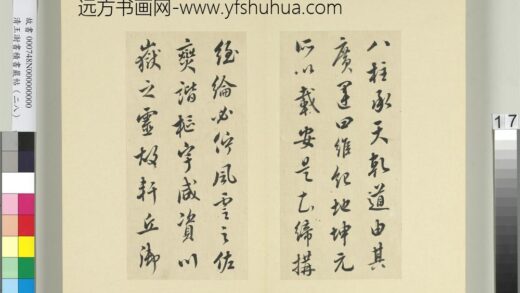 远方书画网-www.yfshuhua.com
故書 000748N00000000
清王澍書積書巖帖（二八）
17
八柱承天乾道由其
廣運四維紀地坤元
所以載安是知締搆
經綸必佇風雲之佐
燮諧樞宰咸資川
嶽之靈故軒丘御